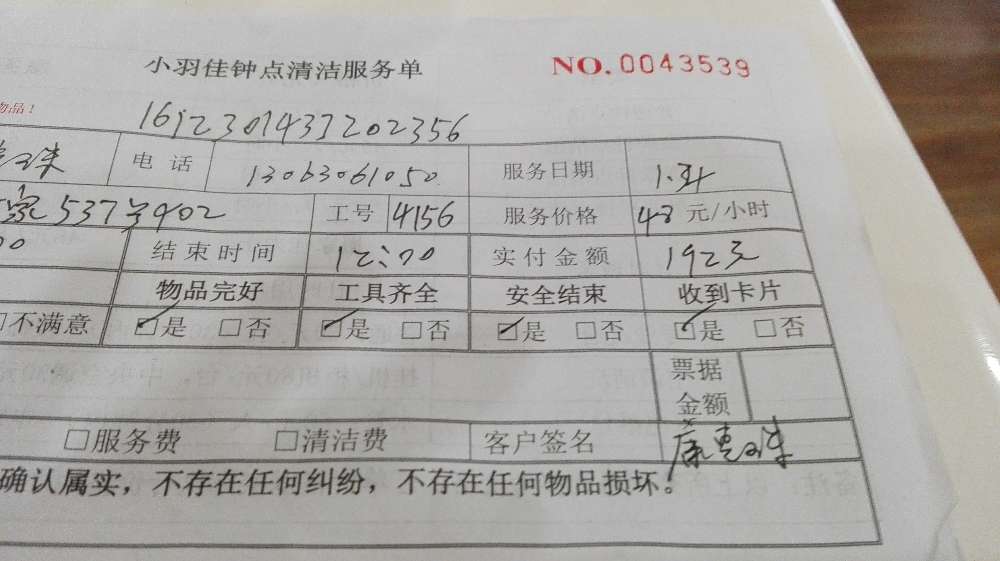 小羽佳钟点清洁服务单 NO.0043539
物品!
电话 13063061050 服务日期
537号902 工号 4156 服务价格 48 元/小时
00 结束时间 12:00 实付金额 192元
物品完好 工具齐全 安全结束 收到卡片
□不满意 ☑是 □否 ☑是 □否 ☑是 □否 ☑是 □否
票据
金额
□服务费 □清洁费 客户签名
确认属实，不存在任何纠纷，不存在任何物品损坏。